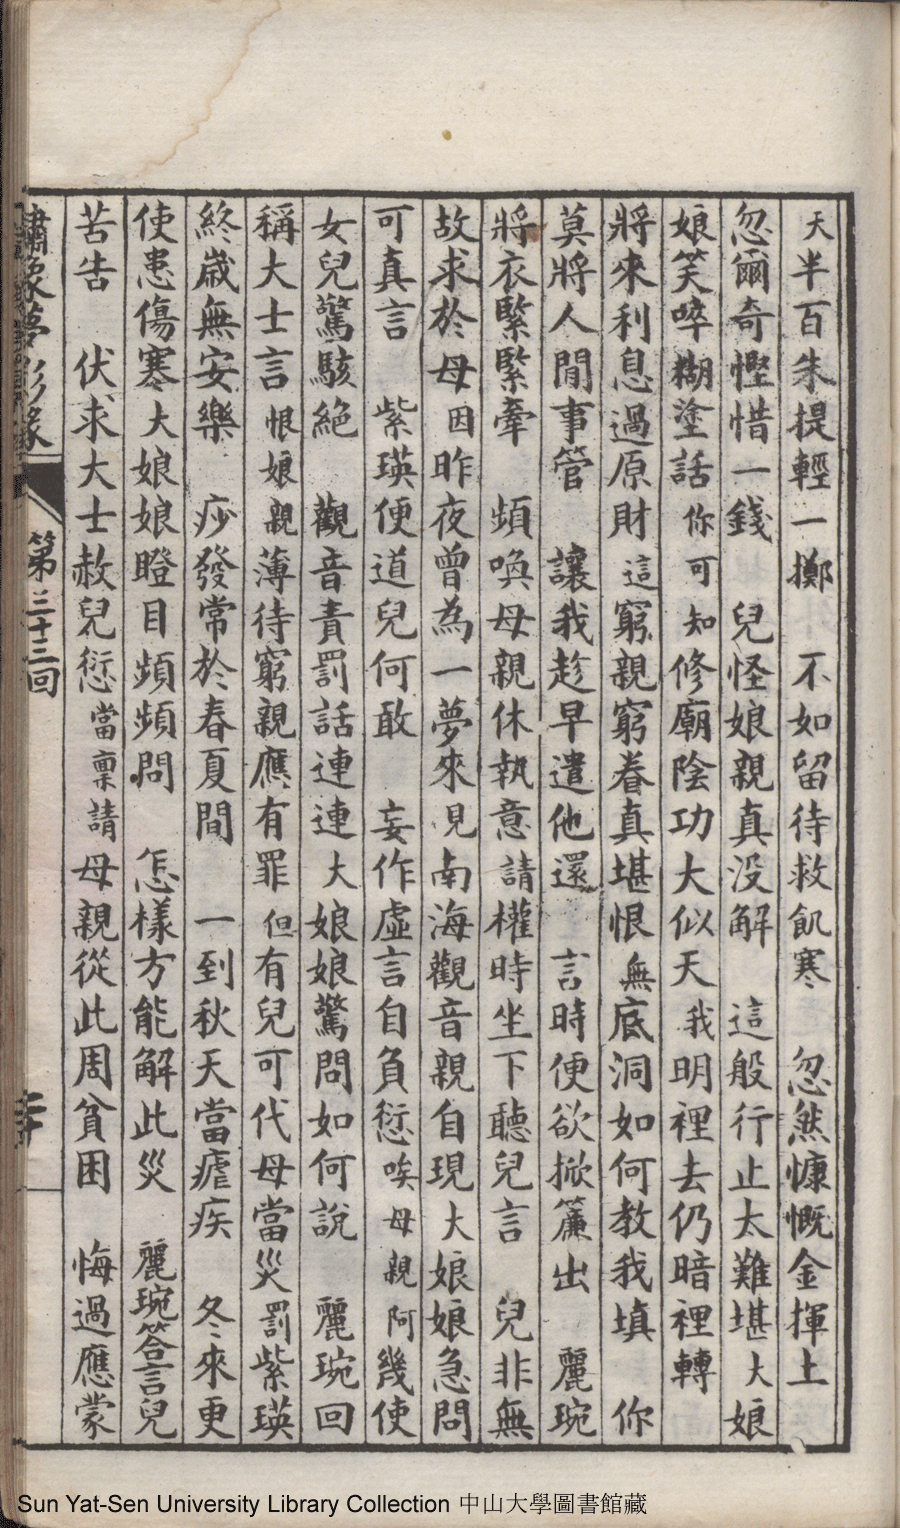 天半百朱提輕一擲　不如留待救飢寒　忽然慷慨金揮土
忽爾奇慳惜一錢　兒怪娘親真没解　這般行止太難堪大娘
娘笑啐糊塗話你可知修廟陰功大似天我明裡去仍暗裡轉
將來利息過原財這窮親窮眷真堪恨無底洞如何教我填　你
莫將人間事管　讓我趁早遣他還　言時便欲掀簾出　麗琬
將衣緊緊牽　頻喚母親休執意請權時坐下聽兒言　兒非無
故求於母因昨夜曾為一夢來見南海觀音親自現大娘娘急問
可真言　紫瑛便道兒何敢　妄作虛言自負愆唉母親阿幾使
女兒驚駭絶　觀音責罰話連連大娘娘驚問如何說　麗琬回
稱大士言恨娘親薄待窮親應有罪但有兒可代母當災罰紫瑛
終歲無安樂　痧發常於春夏間　一到秋天當瘧疾　冬來更
使患傷寒大娘娘瞪目頻頻問　怎樣方能解此災　麗琬答言兒
苦告　伏求大士赦兒愆當稟請母親從此周貧困　悔過應蒙
繡像夢影緣　第三十三回
Sun Yat-Sen University Library Collection 中山大學圖書館藏